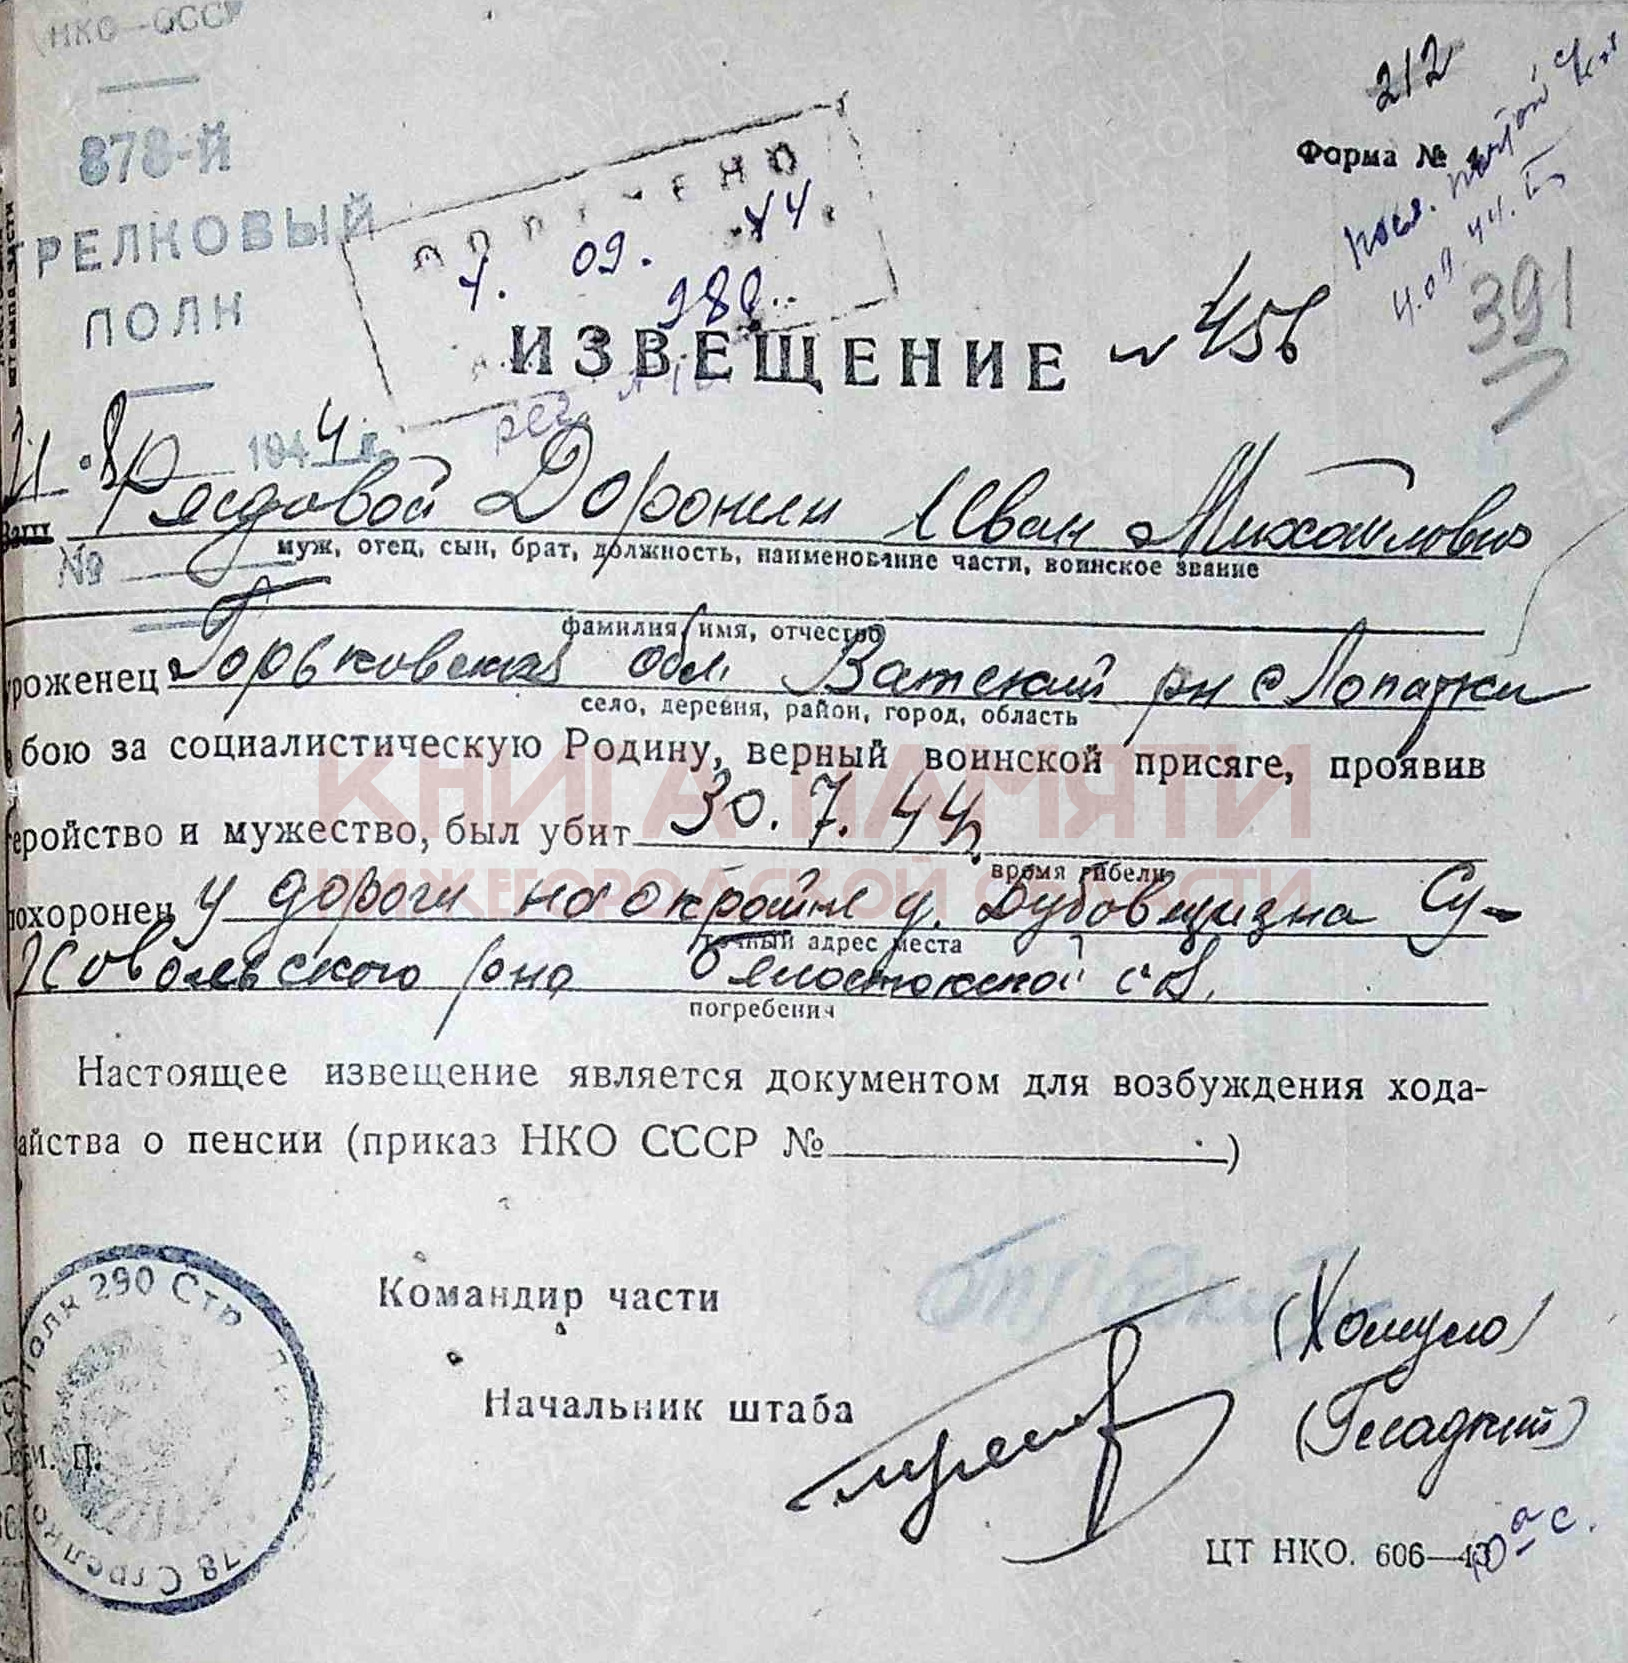 НКО—СССР
212
878-й
Форма №
ТРЕЛКОВЫЙ
ПОЛК
ПОЛУЧЕНО
4. 09. 44.
980
4.09 44.
391
ИЗВЕЩЕНИЕ № 456
21 · 8 1944 г.
Ваш Рядовой Доронин Иван Михайлович
№
муж, отец, сын, брат, должность, наименование части, воинское звание
фамилия, имя, отчество
уроженец Горьковская обл. Ватский рн с Лопатки
село, деревня, район, город, область
бою за социалистическую Родину, верный воинской присяге, проявив
КНИГА ПАМЯТИ
геройство и мужество, был убит 30.7.44
время гибели
НИЖЕГОРОДСКОЙ ОБЛАСТИ
похоронен у дороги на окрайне д. Дубовщизна Су-
точный адрес места
ховольского рна Белостокской обл.
погребения
Настоящее извещение является документом для возбуждения хода-
айства о пенсии (приказ НКО СССР № )
Командир части
Начальник штаба (Гладкий)
М. П.
Полк 290 Стр
78 Стрелко
ЦТ НКО. 606—43